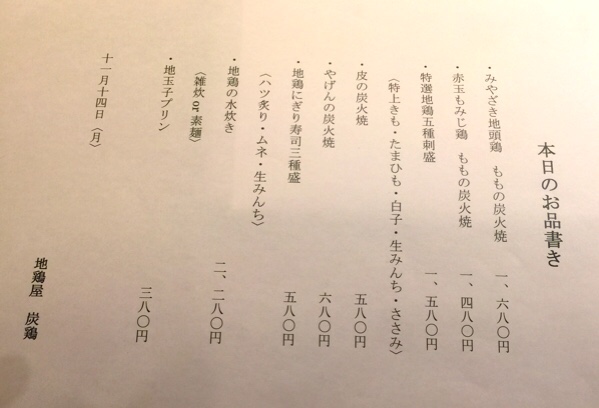 本日のお品書き
・みやざき地頭鶏　ももの炭火焼　一、六八〇円
・赤玉もみじ鶏　ももの炭火焼　一、四八〇円
・特選地鶏五種刺盛　一、五八〇円
〈特上きも・たまひも・白子・生みんち・ささみ〉
・皮の炭火焼　五八〇円
・やげんの炭火焼　六八〇円
・地鶏にぎり寿司三種盛　五八〇円
〈ハツ炙り・ムネ・生みんち〉
・地鶏の水炊き　二、二八〇円
〈雑炊 or 素麺〉
・地玉子プリン　三八〇円
十一月十四日〈月〉
地鶏屋　炭鶏